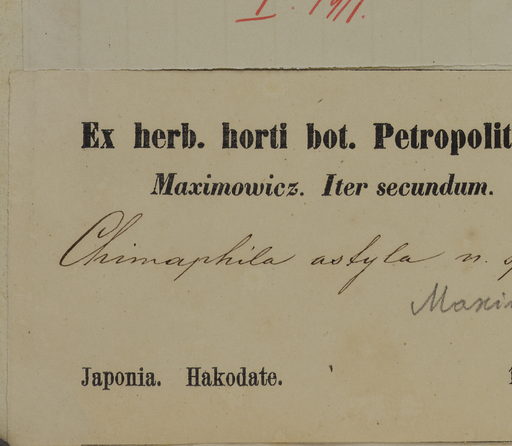 I. 1911.
Ex herb. horti bot. Petropolit
Maximowicz. Iter secundum.
Chimaphila astyla n. s
Maxim
Japonia. Hakodate. 1